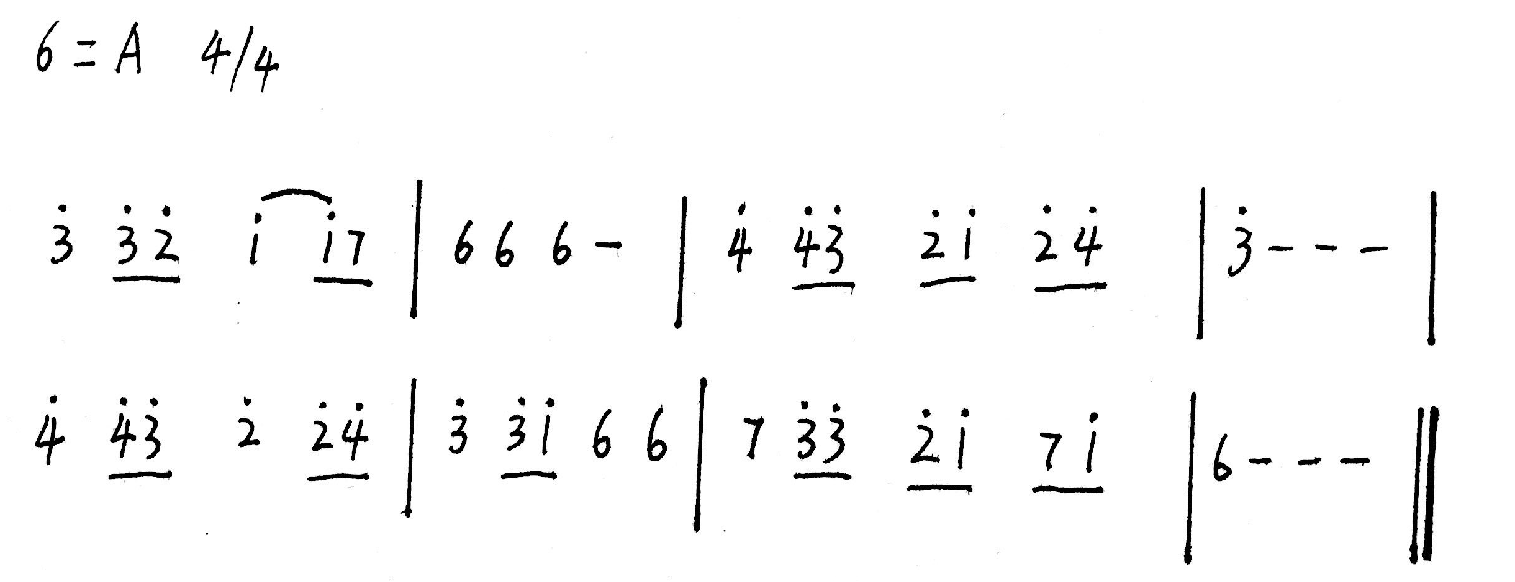 6=A 4/4
3̇ 3̇2̇ 1̇ 1̇7 | 6 6 6 - | 4̇ 4̇3̇ 2̇1̇ 2̇4̇ | 3̇ - - - |
4̇ 4̇3̇ 2̇ 2̇4̇ | 3̇ 3̇1̇ 6 6 | 7 3̇3̇ 2̇1̇ 71̇ | 6 - - - ‖